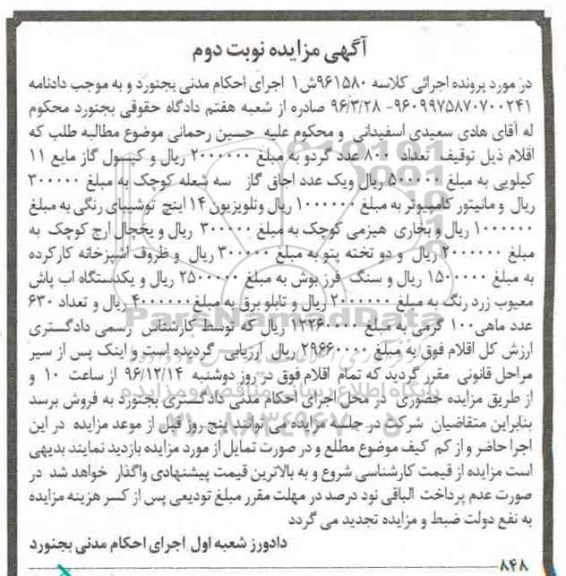 آگهی مزایده نوبت دوم
در مورد پرونده اجرائی کلاسه ۹۶۱۵۸۰ش۱ اجرای احکام مدنی بجنورد و به موجب دادنامه
۹۶۰۹۹۷۵۸۷۰۷۰۰۲۴۱- ۹۶/۳/۲۸ صادره از شعبه هفتم دادگاه حقوقی بجنورد محکوم
له آقای هادی سعیدی اسفیدانی و محکوم علیه حسین رحمانی موضوع مطالبه طلب که
اقلام ذیل توقیف تعداد ۸۰۰ عدد گردو به مبلغ ۲۰۰۰۰۰۰ ریال و کپسول گاز مایع ۱۱
کیلویی به مبلغ ۵۰۰۰۰۰ ریال ویک عدد اجاق گاز سه شعله کوچک به مبلغ ۳۰۰۰۰۰
ریال و مانیتور کامپیوتر به مبلغ ۱۰۰۰۰۰۰ ریال وتلویزیون ۱۴ اینچ توشیبای رنگی به مبلغ
۱۰۰۰۰۰۰ ریال و بخاری هیزمی کوچک به مبلغ ۳۰۰۰۰۰ ریال و یخچال ارج کوچک به
مبلغ ۲۰۰۰۰۰۰ ریال و دو تخته پتو به مبلغ ۳۰۰۰۰۰ ریال و ظروف اشپزخانه کارکرده
به مبلغ ۱۵۰۰۰۰۰ ریال و سنگ فرز بوش به مبلغ ۲۵۰۰۰۰۰ ریال و یکدستگاه اب پاش
معیوب زرد رنگ به مبلغ ۲۰۰۰۰۰۰ ریال و تابلو برق به مبلغ ۴۰۰۰۰۰۰ ریال و تعداد ۶۳۰
عدد ماهی۱۰۰ گرمی به مبلغ ۱۲۲۶۰۰۰۰ ریال که توسط کارشناس رسمی دادگستری
ارزش کل اقلام فوق به مبلغ ۲۹۶۶۰۰۰۰ ریال ارزیابی گردیده است و اینک پس از سیر
مراحل قانونی مقرر گردید که تمام اقلام فوق در روز دوشنبه ۹۶/۱۲/۱۴ از ساعت ۱۰ و
از طریق مزایده حضوری در محل اجرای احکام مدنی دادگستری بجنورد به فروش برسد
بنابراین متقاضیان شرکت در جلسه مزایده می توانند پنج روز قبل از موعد مزایده در این
اجرا حاضر و از کم کیف موضوع مطلع و در صورت تمایل از مورد مزایده بازدید نمایند بدیهی
است مزایده از قیمت کارشناسی شروع و به بالاترین قیمت پیشنهادی واگذار خواهد شد در
صورت عدم پرداخت الباقی نود درصد در مهلت مقرر مبلغ تودیعی پس از کسر هزینه مزایده
به نفع دولت ضبط و مزایده تجدید می گردد
دادورز شعبه اول اجرای احکام مدنی بجنورد
۸۴۸
ParsNamadData